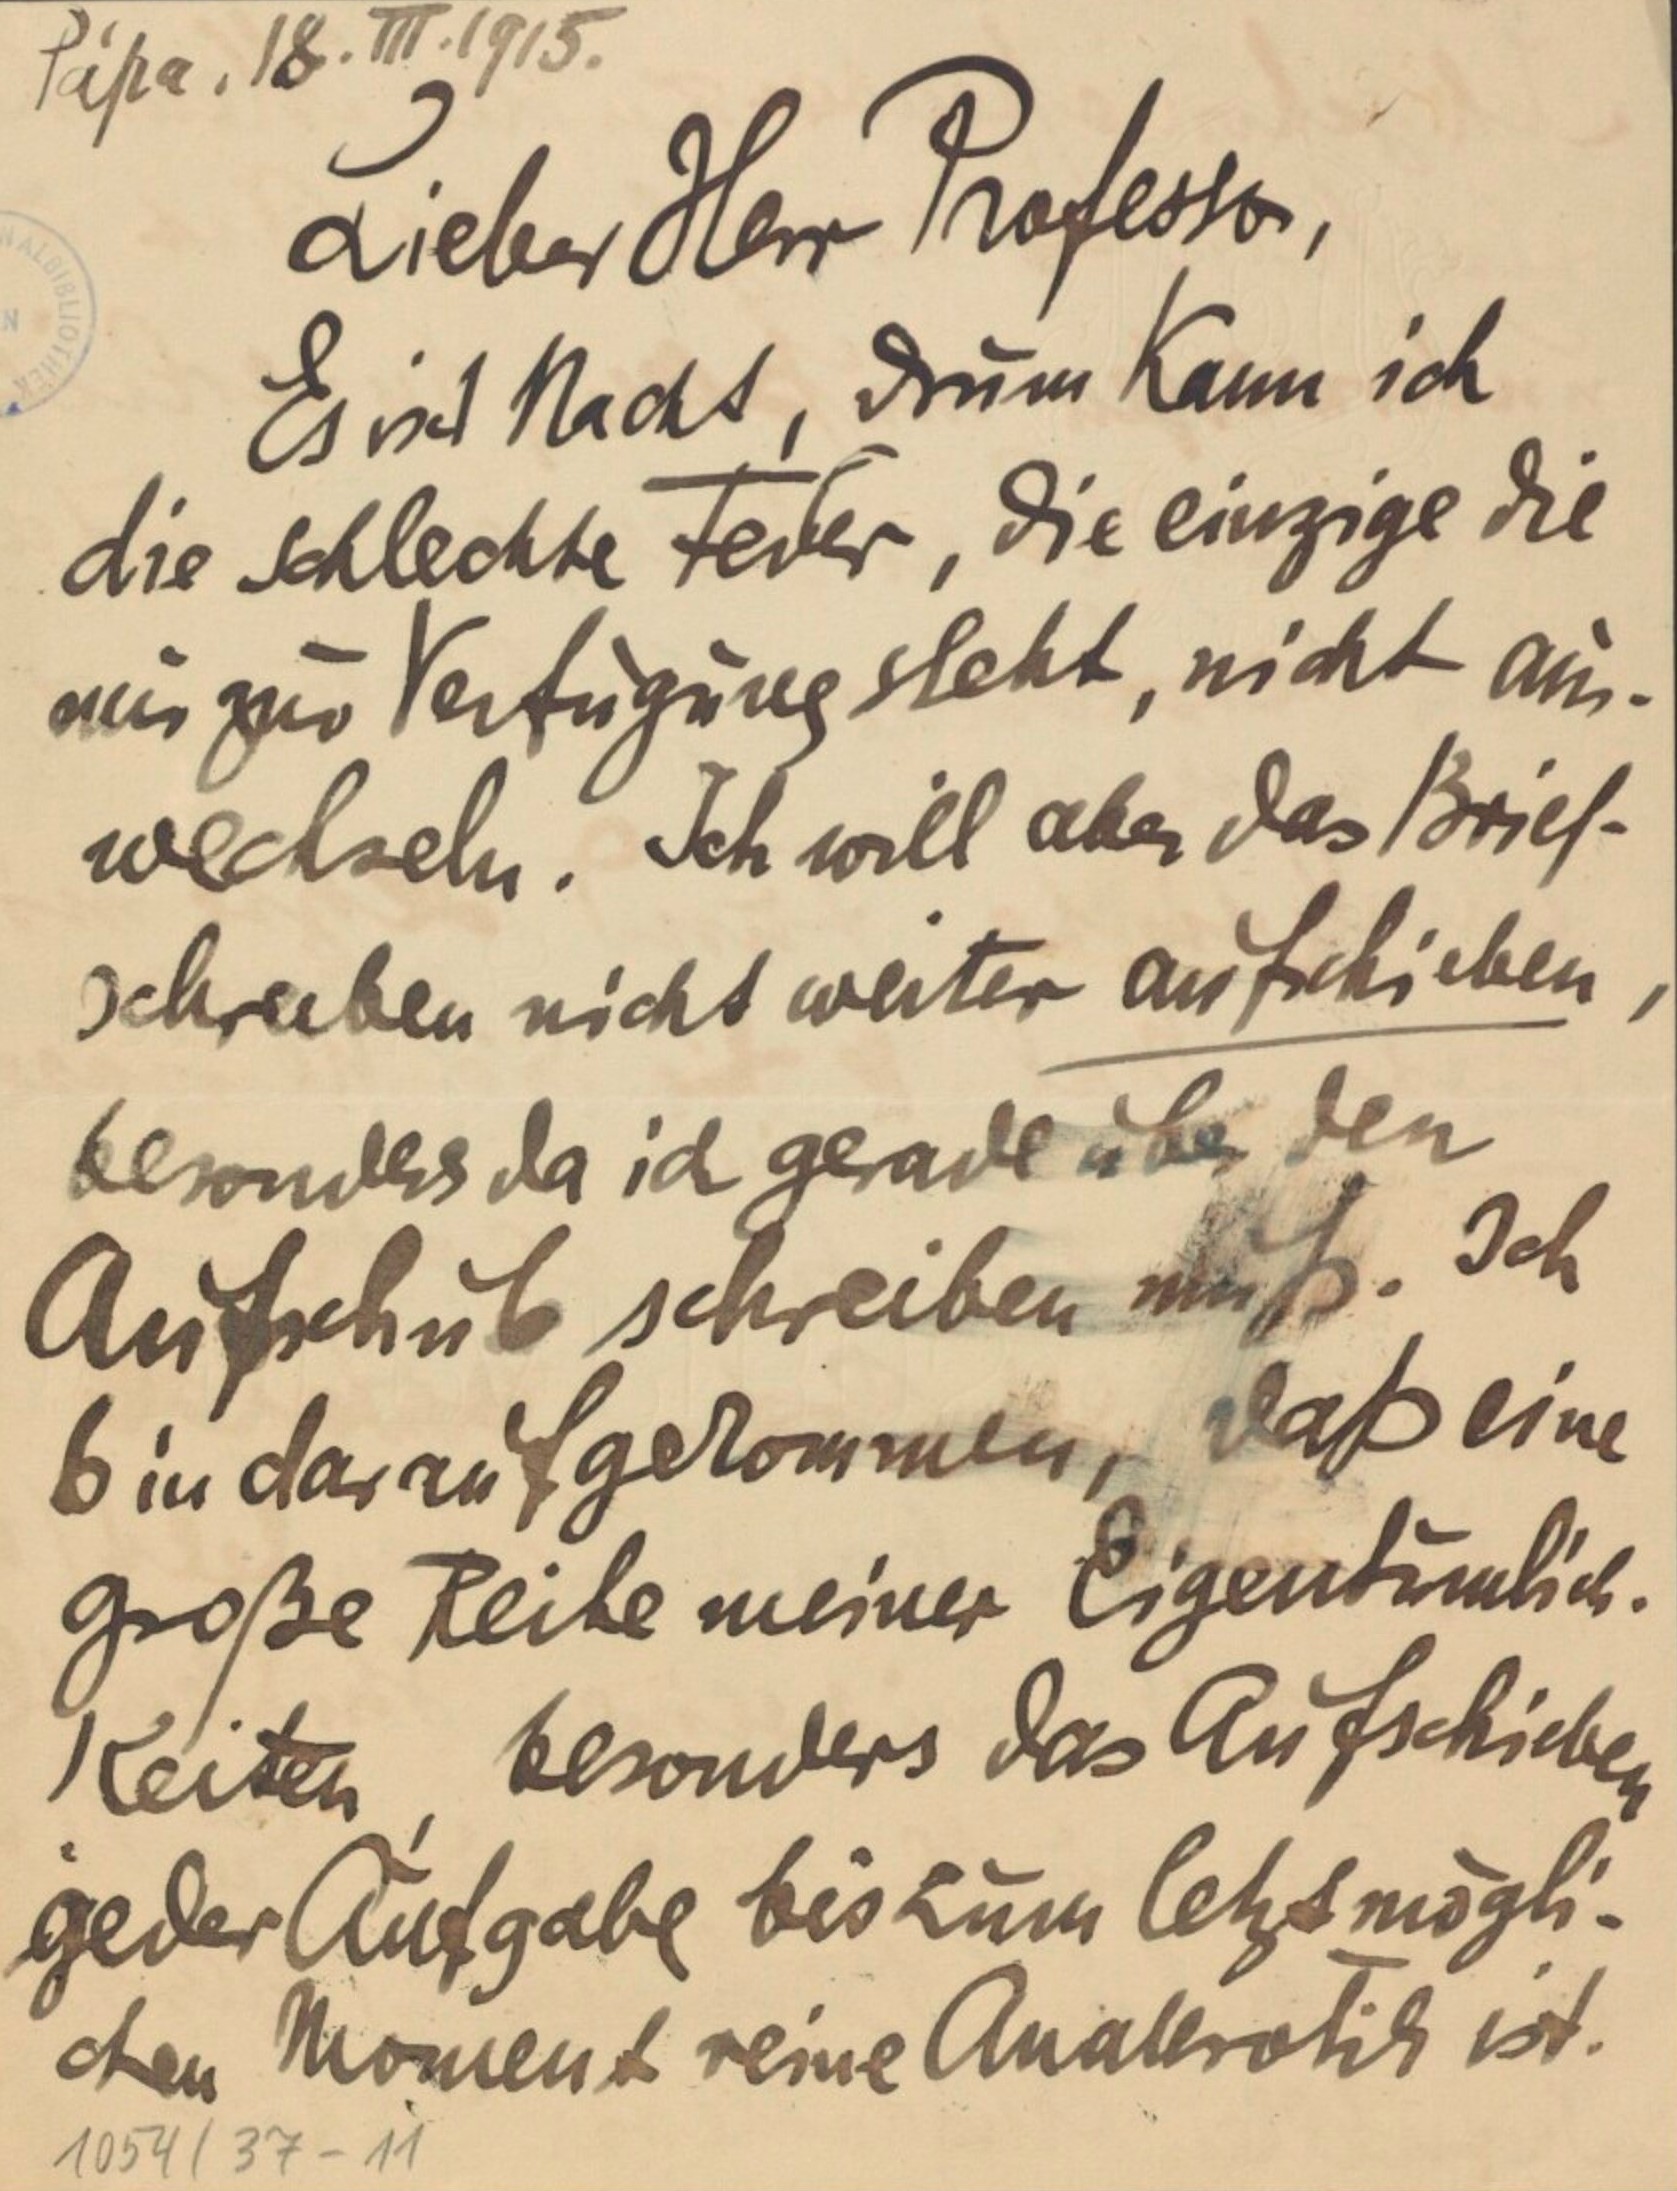 Pápa, 18. III. 1915.
Lieber Herr Professor,
Es ist Nacht, drum kann ich
die schlechte Feder, die einzige die
mir zur Verfügung steht, nicht aus-
wechseln. Ich will aber das Brief-
schreiben nicht weiter aufschieben,
besonders da ich gerade über den
Aufschub schreiben muß. Ich
bin darauf gekommen, daß eine
große Reihe meiner Eigentümlich-
keiten, besonders das Aufschieben
jeder Aufgabe bis zum letztmögli-
chen Moment reine Analerotik ist.
1054/37-11
NALBIBLIOTHEK